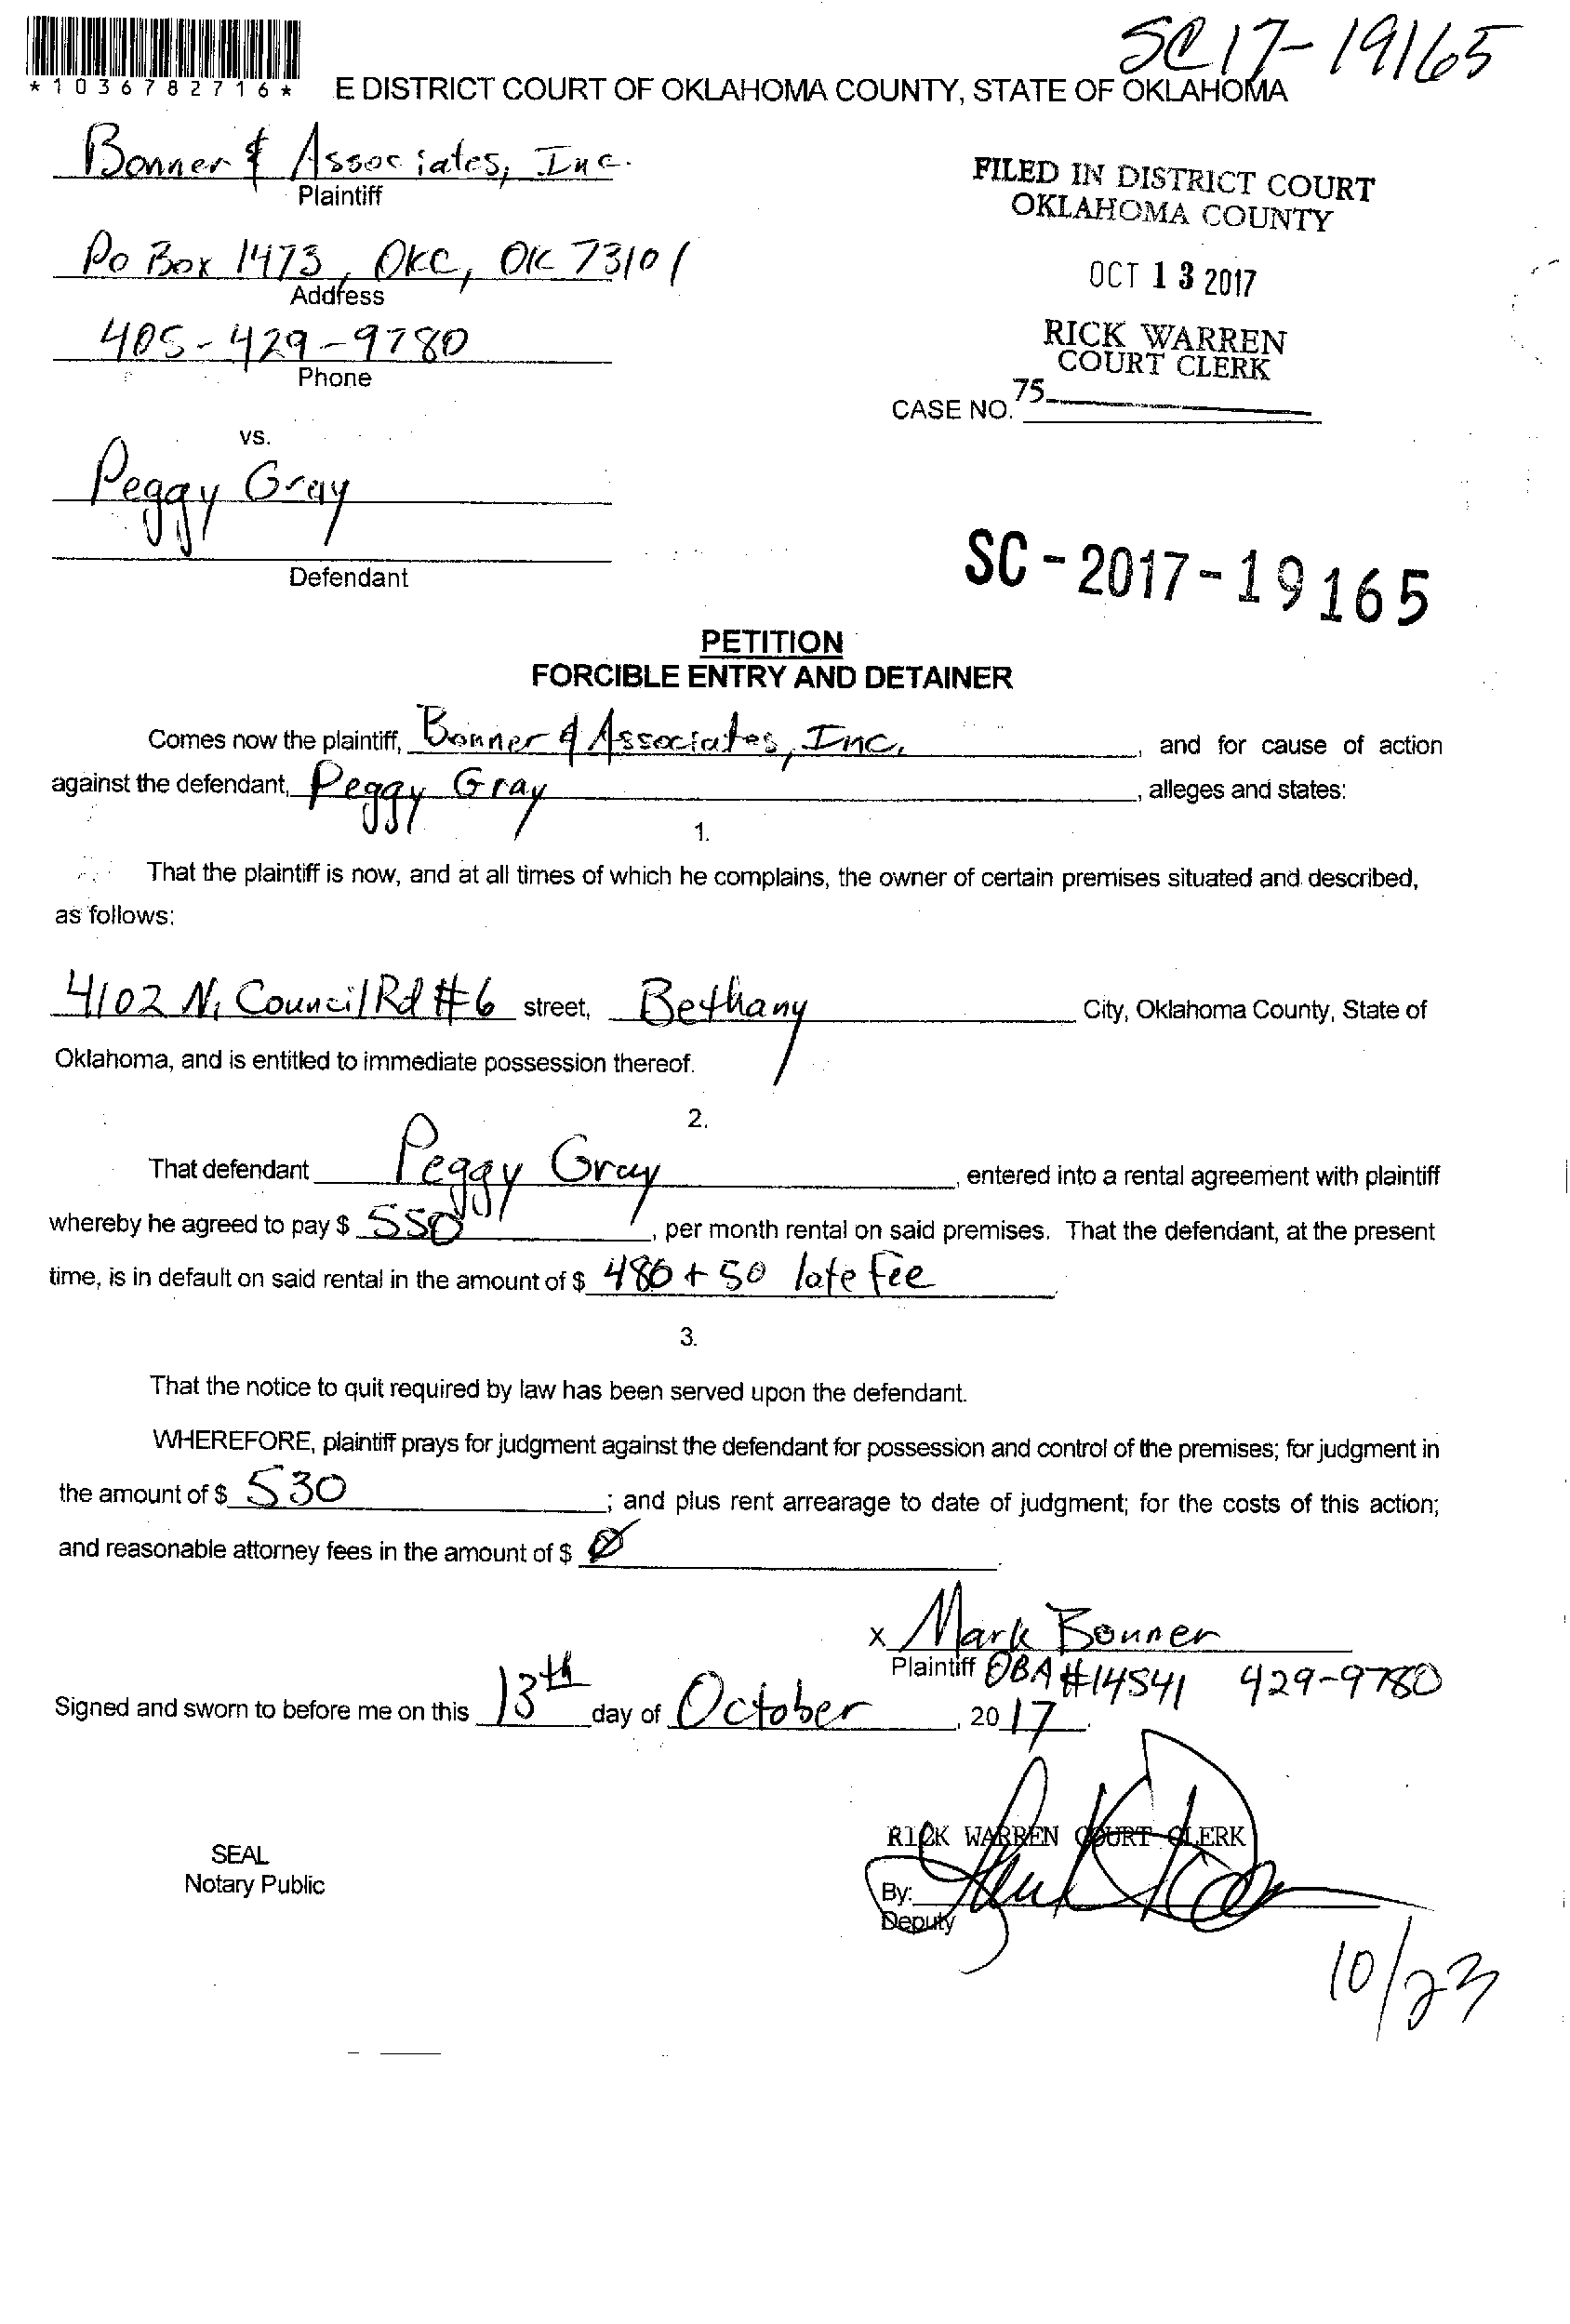 SC17-19165
*1036782716*
E DISTRICT COURT OF OKLAHOMA COUNTY, STATE OF OKLAHOMA
Bonner & Associates, Inc.
Plaintiff
FILED IN DISTRICT COURT
OKLAHOMA COUNTY
PO Box 1473, OKC, OK 73101
Address
OCT 13 2017
405-429-9780
Phone
RICK WARREN
COURT CLERK
CASE NO. 75
vs.
Peggy Gray
Defendant
SC-2017-19165
PETITION
FORCIBLE ENTRY AND DETAINER
Comes now the plaintiff, Bonner & Associates, Inc., and for cause of action
against the defendant, Peggy Gray, alleges and states:
1.
That the plaintiff is now, and at all times of which he complains, the owner of certain premises situated and described,
as follows:
4102 N. Council Rd #6 street, Bethany City, Oklahoma County, State of
Oklahoma, and is entitled to immediate possession thereof.
2.
That defendant Peggy Gray, entered into a rental agreement with plaintiff
whereby he agreed to pay $ 550, per month rental on said premises. That the defendant, at the present
time, is in default on said rental in the amount of $ 480 + 50 late fee.
3.
That the notice to quit required by law has been served upon the defendant.
WHEREFORE, plaintiff prays for judgment against the defendant for possession and control of the premises; for judgment in
the amount of $ 530; and plus rent arrearage to date of judgment; for the costs of this action;
and reasonable attorney fees in the amount of $ Ø.
x Mark Bonner
Plaintiff OBA #14541 429-9780
Signed and sworn to before me on this 13th day of October, 2017.
RICK WARREN COURT CLERK
SEAL
Notary Public
By:
Deputy
10/23